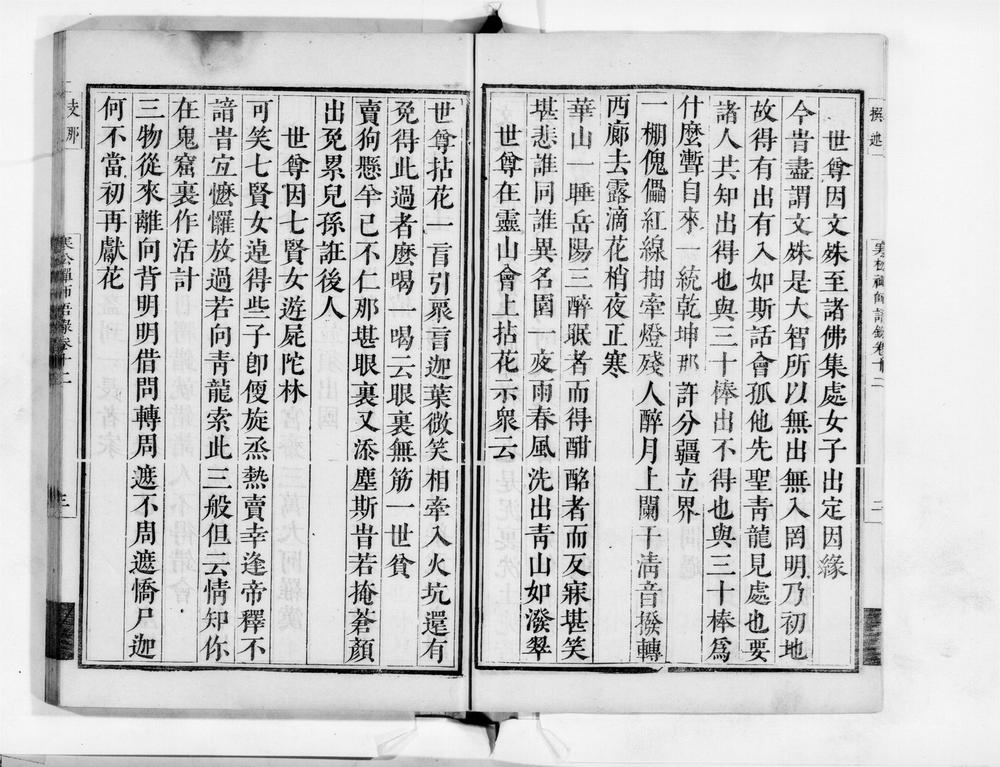 撰述一
禪師語錄卷十二
二
世尊因文殊至諸佛集處女子出定因緣
今昔盡謂文殊是大智所以無出無入罔明乃初地
故得有出有入如斯話會孤他先聖青龍見處也要
諸人共知出得也與三十棒出不得也與三十棒為
什麼漸自來一統乾坤那許分疆立界
一棚傀儡紅線抽牽燈殘人醉月上闌干清音撥轉
西廊去露滴花梢夜正寒
華山一睡岳陽三醉眠者而得酣酩者而反寐堪笑
堪悲誰同誰異名園一夜雨春風洗出青山如潑翠
世尊在靈山會上拈花示眾云
世尊拈花一盲引眾盲迦葉微笑相牽入火坑還有
免得此過者麼喝一喝云眼裏無筋一世貧
賣狗懸羊已不仁那堪眼裏又添塵斯昔若掩蒼顏
出免累兒孫誑後人
世尊因七賢女遊屍陀林
可笑七賢女遠得些子即便旋炰熱賣幸逢帝釋不
諳昔宜懡㦬放過若向青龍索此三般但云情知你
在鬼窟裏作活計
三物從來離向背明明借問轉周遮不周遮憍尸迦
何不當初再獻花
支那
禪師語錄卷十二
三